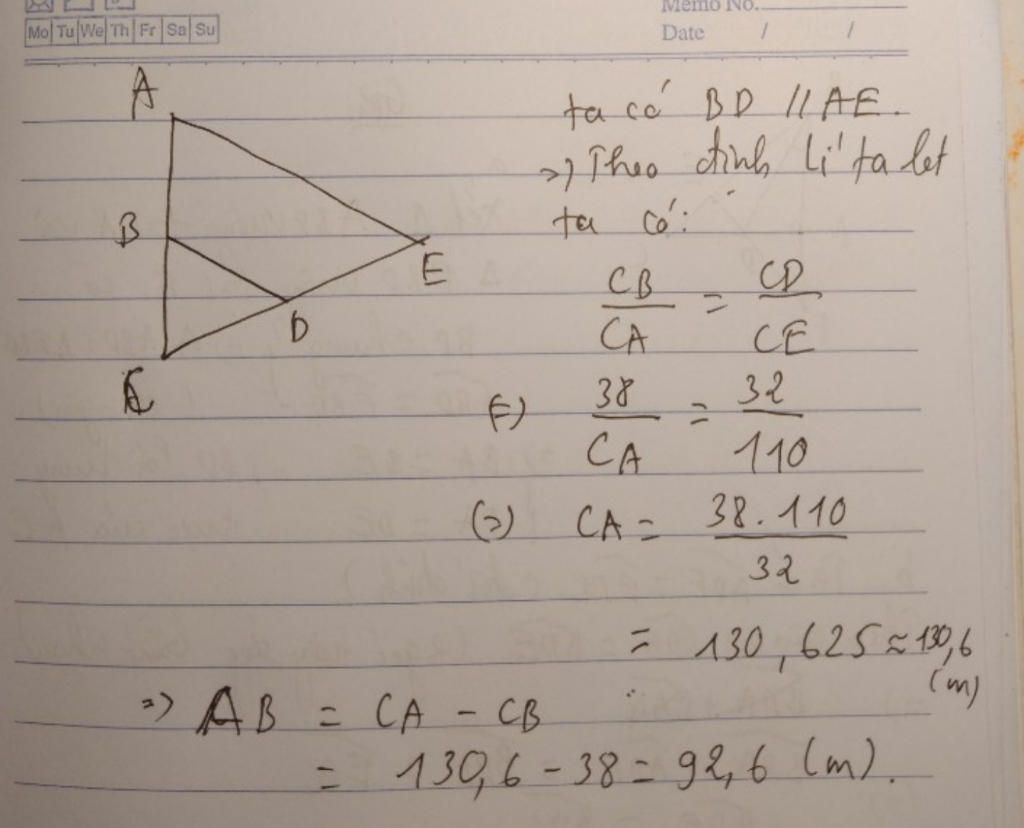 Memo No.
Mo Tu We Th Fr Sa Su
Date / /
A
B
E
D
C
ta có BD // AE.
=> Theo định lí ta let
ta có:
CB/CA = CD/CE
(=) 38/CA = 32/110
(=) CA = 38.110/32
= 130,625 ≈ 130,6
(m)
=> AB = CA - CB
= 130,6 - 38 = 92,6 (m).